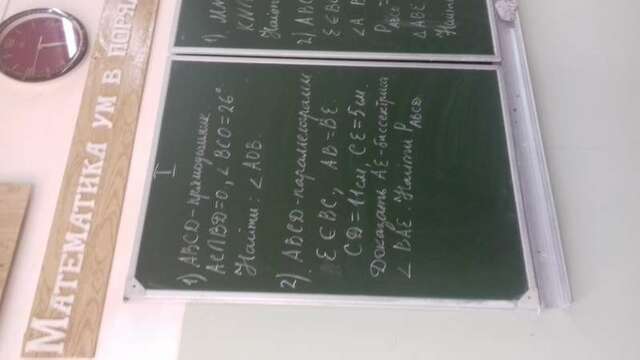 МАТЕМАТИКА УМ В ПОРЯ
I
1) ABCD-прямоугольник
AC∩BD=O, ∠BCO=26°
Найти: ∠AOB.
2) ABCD-параллелограмм
E∈BC, AB=BE
CD=11см, CE=5см.
Доказать AE-биссектриса
∠BAE. Найти P_ABCD
1) М
KN
Найти
2) ABC
E∈B
∠A B
P_ABC
∠ABC
Найти